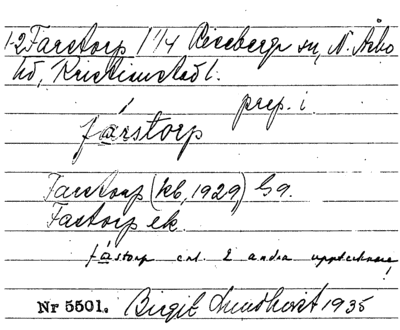 1-2 Farstorp 1 1/4 Risebergs sn, N. Åsbo
hd, Kristianstads l.
prep. i.
fárstorp
Farstorp (kb, 1929) G9.
Fastorp ek.
fástorp enl. 2 andra upptecknare!
Nr 5501. Birgit Lundkvist 1935